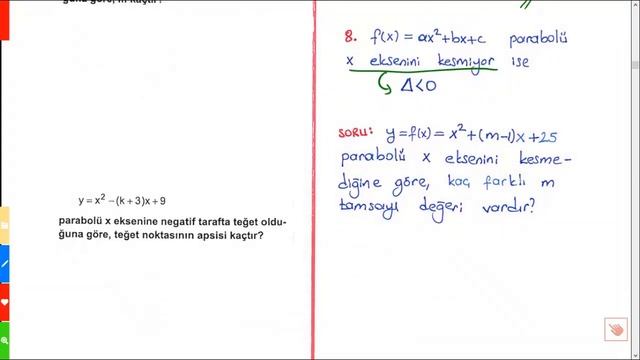 y = x² − (k + 3)x + 9
parabolü x eksenine negatif tarafta teğet oldu-
ğuna göre, teğet noktasının apsisi kaçtır?
8. f(x) = ax²+bx+c parabolü
x eksenini kesmiyor ise
Δ<0
SORU: y=f(x) = x²+(m-1)x+25
parabolü x eksenini kesme-
diğine göre, kaç farklı m
tamsayı değeri vardır?